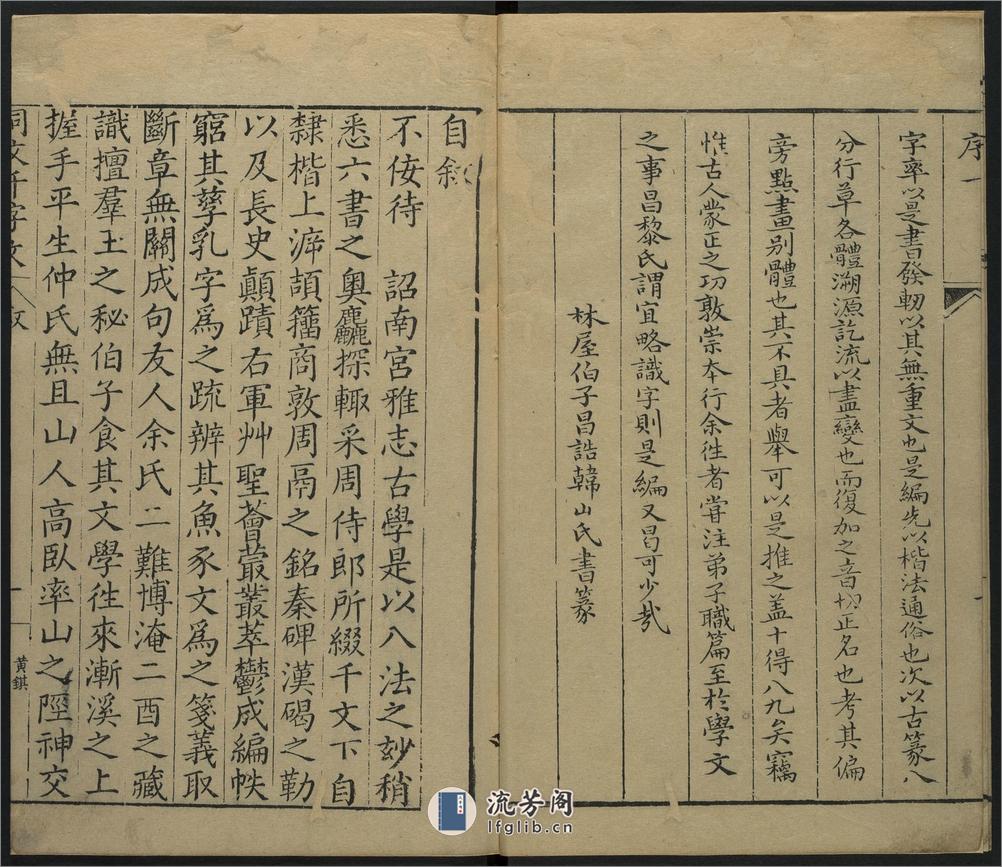 序一
字率以是書發軔以其無重文也是編先以楷法通俗也次以古篆八
分行草各體溯源訖流以盡變也而復加之音切正名也考其偏
旁點畫别體也其不具者舉可以是推之盖十得八九矣竊
惟古人蒙正之功敦崇本行余徃者甞注弟子職篇至於學文
之事昌黎氏謂宜略識字則是編又曷可少哉
林屋伯子昌誥韓山氏書篆
自叙
不佞待 詔南宮雅志古學是以八法之玅稍
悉六書之奥麤探輙采周侍郎所綴千文下自
隸楷上泝頡籒商敦周鬲之銘秦碑漢碣之勒
以及長史顛蹟右軍艸聖薈蕞叢萃鬱成編帙
窮其孳乳字爲之疏辨其魚豕文爲之箋義取
斷章無關成句友人余氏二難博淹二酉之藏
識擅羣玉之秘伯子食其文學徃來漸溪之上
握手平生仲氏無且山人高臥率山之陘神交
同文千字文 叙 一 黄鋘
流芳阁
lfglib.cn